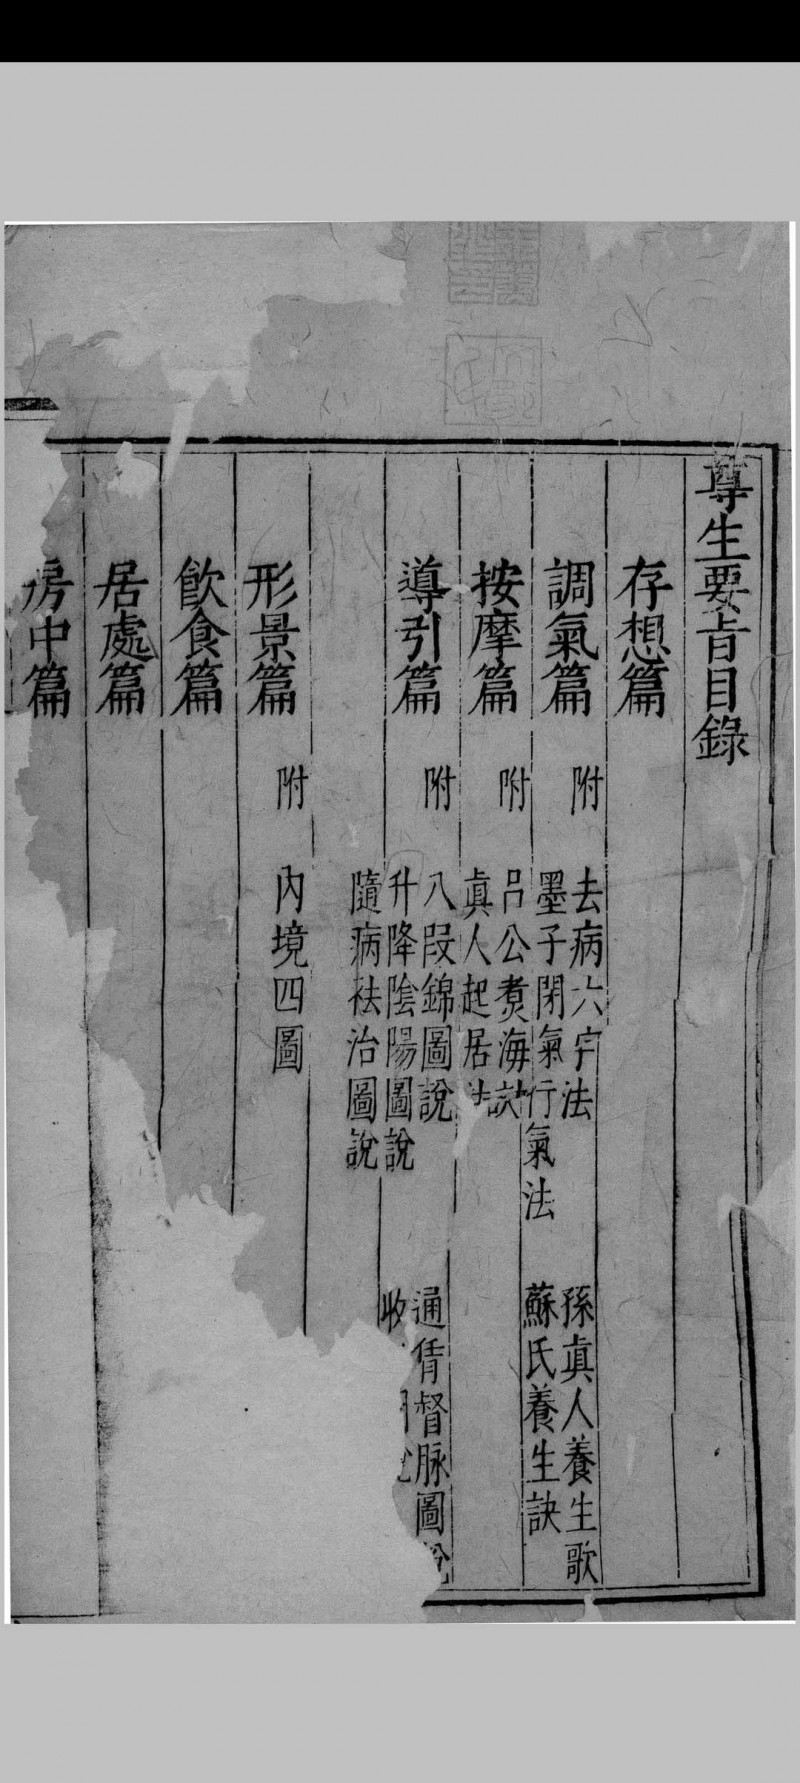 尊生要旨目錄
存想篇
調氣篇 附 去病六字法 孫真人養生歌
墨子閉氣行氣法 蘇氏養生訣
按摩篇 附 呂公煑海訣
真人起居法
導引篇 附 八段錦圖說 通督脉圖說
升降陰陽圖說 收
隨病祛治圖說
形景篇 附 內境四圖
飲食篇
居處篇
房中篇